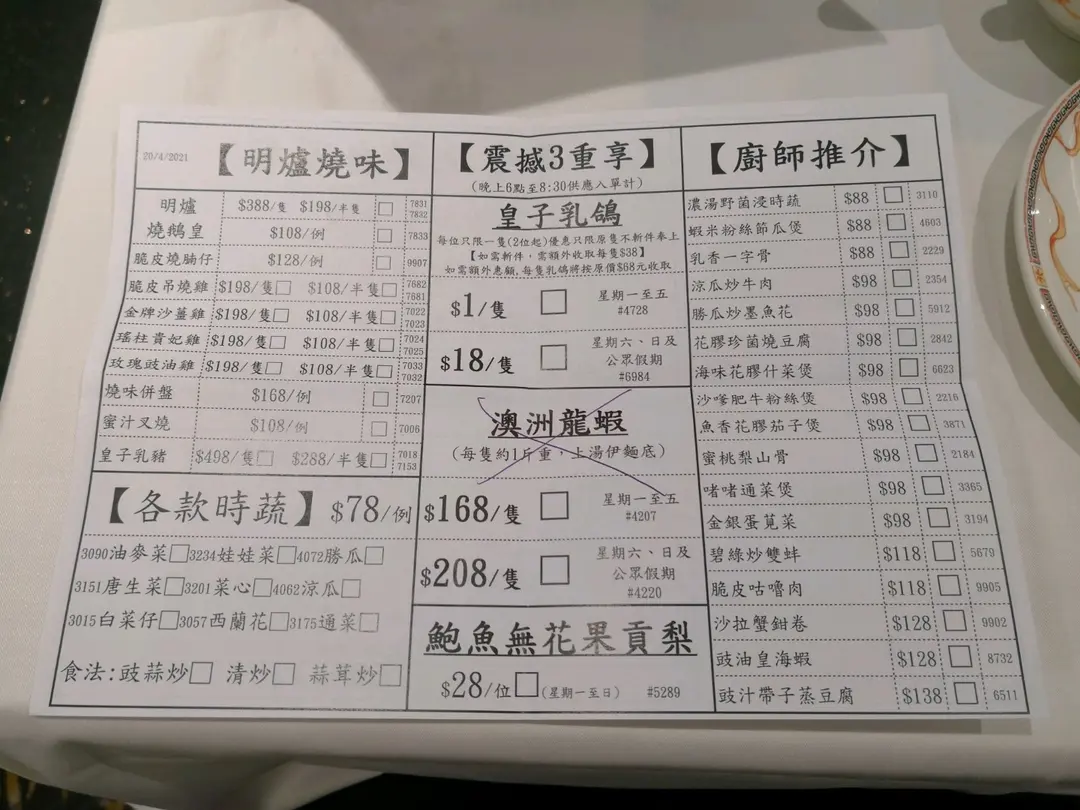 20/4/2021 【明爐燒味】
明爐 $388/隻 $198/半隻 □ 7831 7832
燒鵝皇 $108/例 □ 7833
脆皮燒腩仔 $128/例 □ 9907
脆皮吊燒雞 $198/隻□ $108/半隻□ 7682 7681
金牌沙薑雞 $198/隻□ $108/半隻□ 7022 7023
瑤柱貴妃雞 $198/隻□ $108/半隻□ 7024 7025
玫瑰豉油雞 $198/隻□ $108/半隻□ 7033 7032
燒味併盤 $168/例 □ 7207
蜜汁叉燒 $108/例 □ 7006
皇子乳豬 $498/隻□ $288/半隻□ 7018 7153
【各款時蔬】$78/例
3090油麥菜□3234娃娃菜□4072勝瓜□
3151唐生菜□3201菜心□4062涼瓜□
3015白菜仔□3057西蘭花□3175通菜□
食法:豉蒜炒□ 清炒□ 蒜茸炒□
【震撼3重享】
(晚上6點至8:30供應入單計)
皇子乳鴿
每位只限一隻(2位起)優惠只限原隻不斬件奉上
【如需斬件，需額外收取每隻$38】
如需額外惠顧,每隻乳鴿將按原價$68元收取
$1/隻 □ 星期一至五
#4728
$18/隻 □ 星期六、日及
公眾假期
#6984
澳洲龍蝦
(每隻約1斤重，上湯伊麵底)
$168/隻 □ 星期一至五
#4207
$208/隻 □ 星期六、日及
公眾假期
#4220
鮑魚無花果貢梨
$28/位□(星期一至日) #5289
【廚師推介】
濃湯野菌浸時蔬 $88 □ 3110
蝦米粉絲節瓜煲 $88 □ 4603
乳香一字骨 $88 □ 2229
涼瓜炒牛肉 $98 □ 2354
勝瓜炒墨魚花 $98 □ 5912
花膠珍菌燒豆腐 $98 □ 2842
海味花膠什菜煲 $98 □ 6623
沙嗲肥牛粉絲煲 $98 □ 2216
魚香花膠茄子煲 $98 □ 3871
蜜桃梨山骨 $98 □ 2184
啫啫通菜煲 $98 □ 3365
金銀蛋莧菜 $98 □ 3194
碧綠炒雙蚌 $118 □ 5679
脆皮咕嚕肉 $118 □ 9905
沙拉蟹鉗卷 $128 □ 9902
豉油皇海蝦 $128 □ 8732
豉汁帶子蒸豆腐 $138 □ 6511